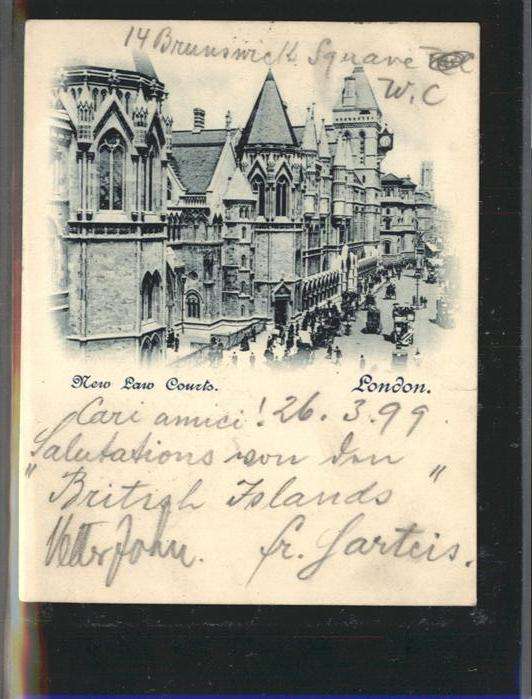 14 Brunswick Square
W.C
New Law Courts.
London.
Cari amici! 26. 3. 99.
Salutations von den
"British Islands"
Vetter John. fr. Sarteis.